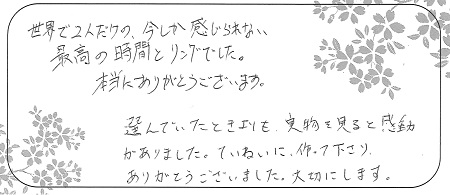 世界で2人だけの、今しか感じられない
最高の時間とリングでした。
本当にありがとうございます。
選んでいたときよりも、実物を見ると感動
がありました。ていねいに、作って下さり、
ありがとうございました。大切にします。